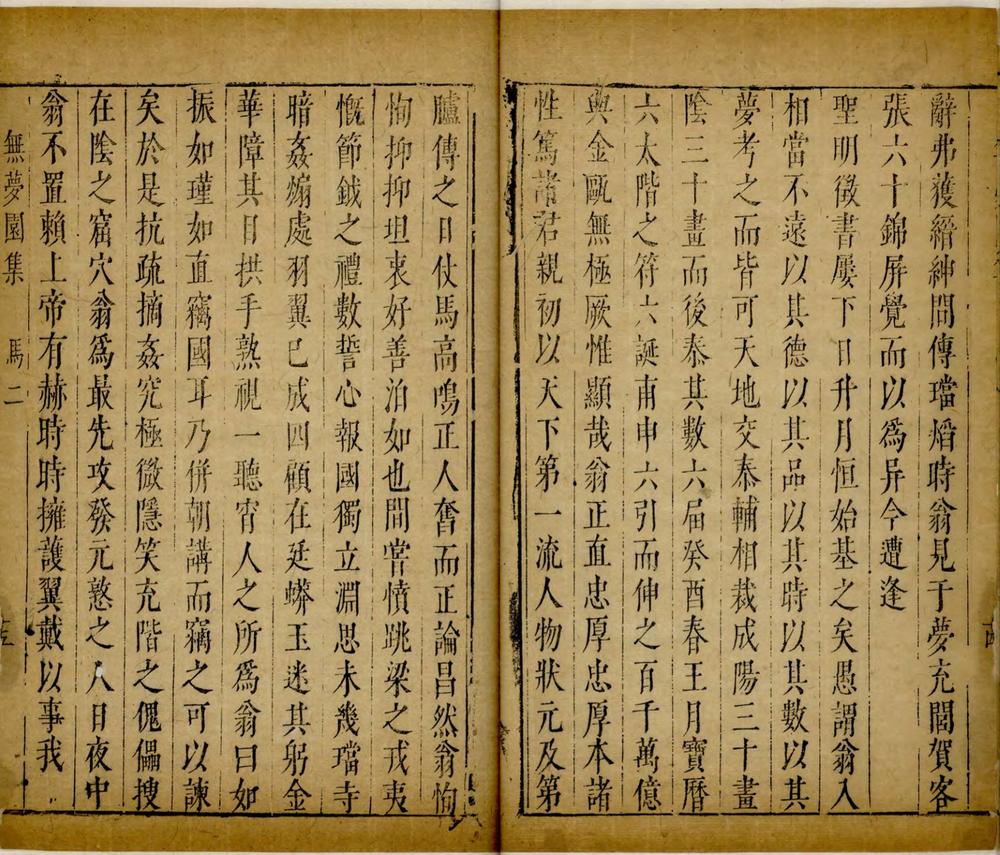 辭弗獲縉紳問傳璫焰時翁見于夢充閭賀客
張六十錦屏覺而以爲异今遭逢
聖明徵書屢下日升月恒始基之矣愚謂翁入
相當不遠以其德以其品以其時以其數以其
夢考之而皆可天地交泰輔相裁成陽三十畫
陰三十畫而後泰其數六届癸酉春王月寶曆
六太階之符六誕甫申六引而伸之百千萬億
與金甌無極厥惟顯哉翁正直忠厚忠厚本諸
性篤諸君親初以天下第一流人物狀元及第
臚傳之日仗馬高鳴正人奮而正論昌然翁恂
恂抑抑坦衷好善泊如也間嘗憤跳梁之戎夷
慨節鉞之禮數誓心報國獨立淵思未幾璫寺
暗姦煽處羽翼已成四顧在廷蟒玉迷其躬金
華障其日拱手熟視一聽宵人之所爲翁曰如
振如瑾如直竊國耳乃併朝講而竊之可以諫
矣於是抗疏摘姦究極微隱笑充階之傀儡搜
在陰之窟穴翁爲最先攻發元憝之人日夜中
翁不置賴上帝有赫時時擁護翼戴以事我
無夢園集 馬二